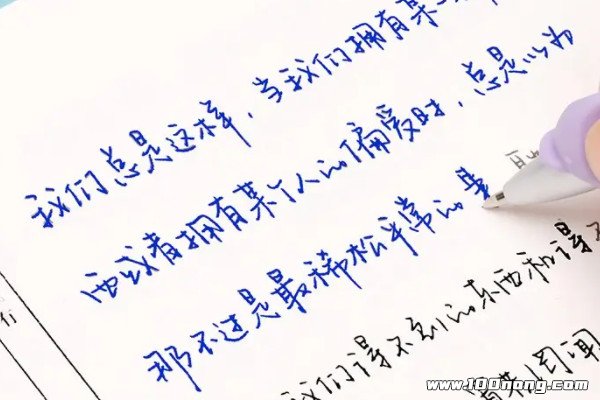 我们总是这样，当我们拥有某一
西或者拥有某个人的偏爱时，总是以为
那不过是最稀松平常的
我们得不到的东西和得不
www.100nong.com